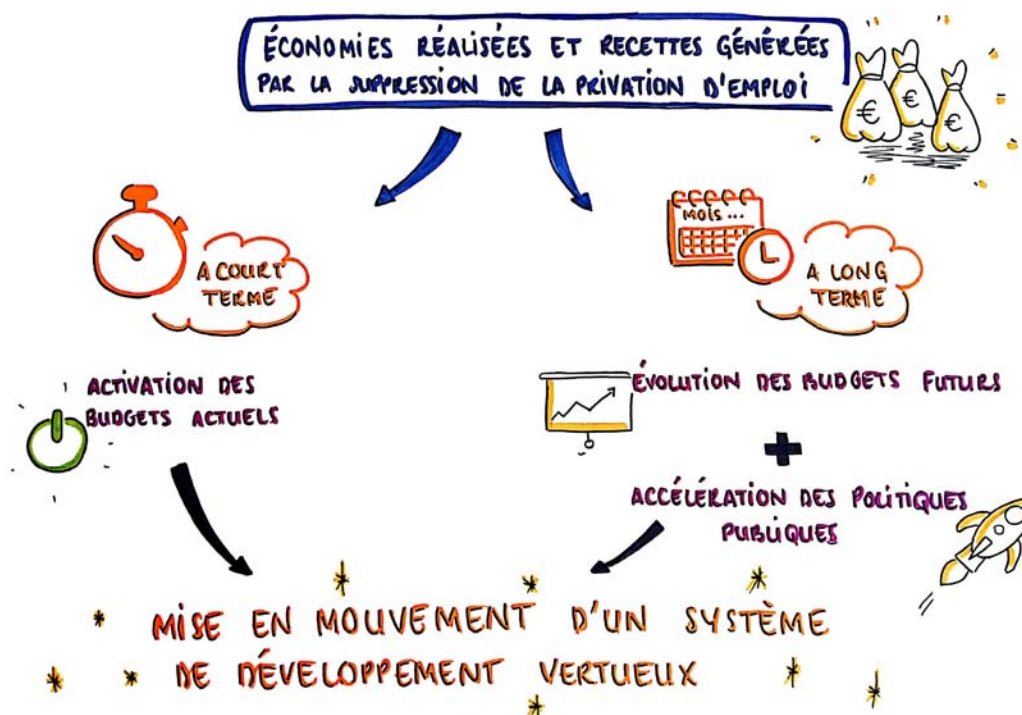 ÉCONOMIES RÉALISÉES ET RECETTES GÉNÉRÉES
PAR LA SUPPRESSION DE LA PRIVATION D'EMPLOI
€ € €
A COURT
TERME
MOIS...
A LONG
TERME
ACTIVATION DES
BUDGETS ACTUELS
ÉVOLUTION DES BUDGETS FUTURS
+
ACCÉLÉRATION DES POLITIQUES
PUBLIQUES
MISE EN MOUVEMENT D'UN SYSTÈME
DE DÉVELOPPEMENT VERTUEUX